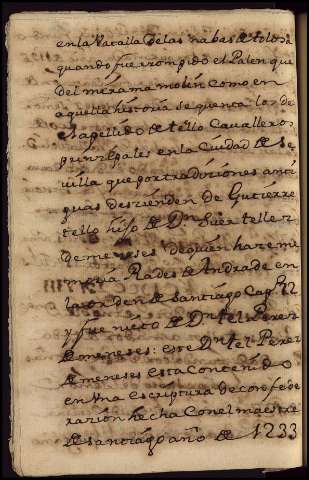 en la Vatalla de las nabas de tolosa
quando fue rrompido el Palenque
del miramamolin Como en
aquella historia se quenta los de
este apellido de tello Cavalleros
prinzipales en la Ciudad de Se
uilla que por tradiziones anti
guas deszienden de Gutierre
tello hijo de Dn Suer tellez
de meneses de quien haze mi
moria Rades de Andrade en
la orden de Santiago Cap
y fue nieto de Dn tel Perez
de meneses: este Dn tel Perez
de meneses esta Contenido
en Vna escriptura de confede
razion hecha Con el maestre
de Santiago año de 1233